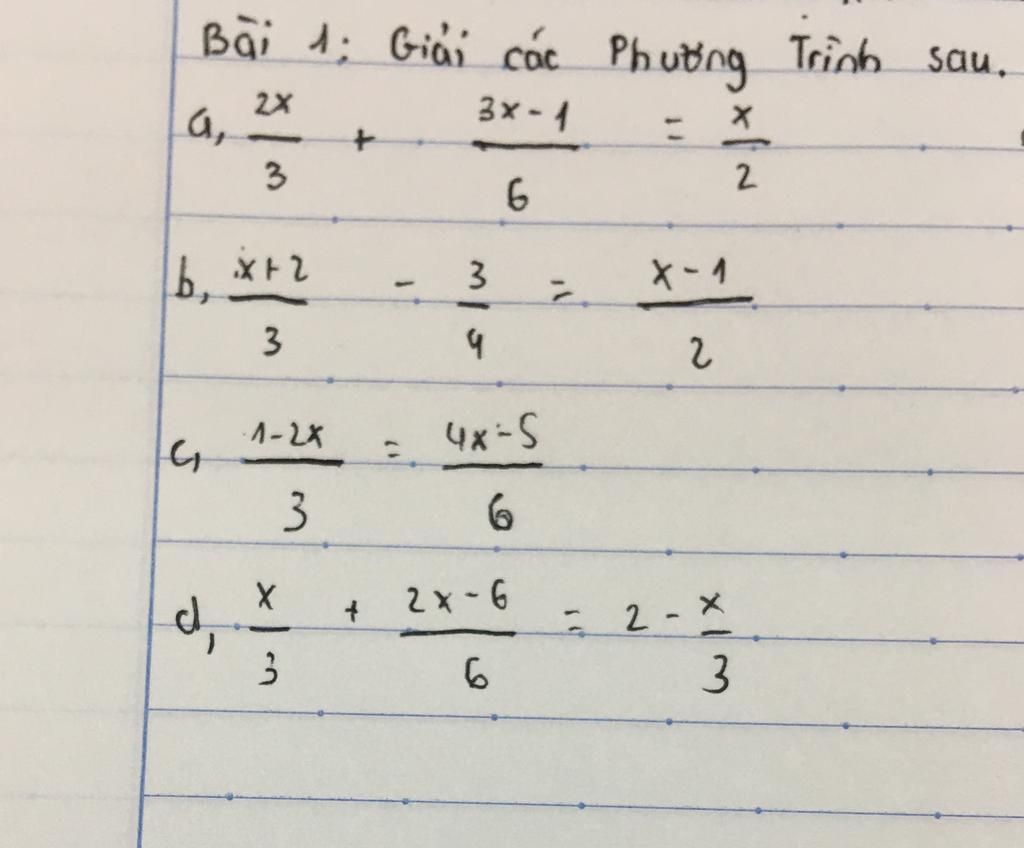 Bài 1: Giải các Phương Trình sau.
a, 2x/3 + 3x-1/6 = x/2
b, x+2/3 - 3/4 = x-1/2
c, 1-2x/3 = 4x-5/6
d, x/3 + 2x-6/6 = 2 - x/3